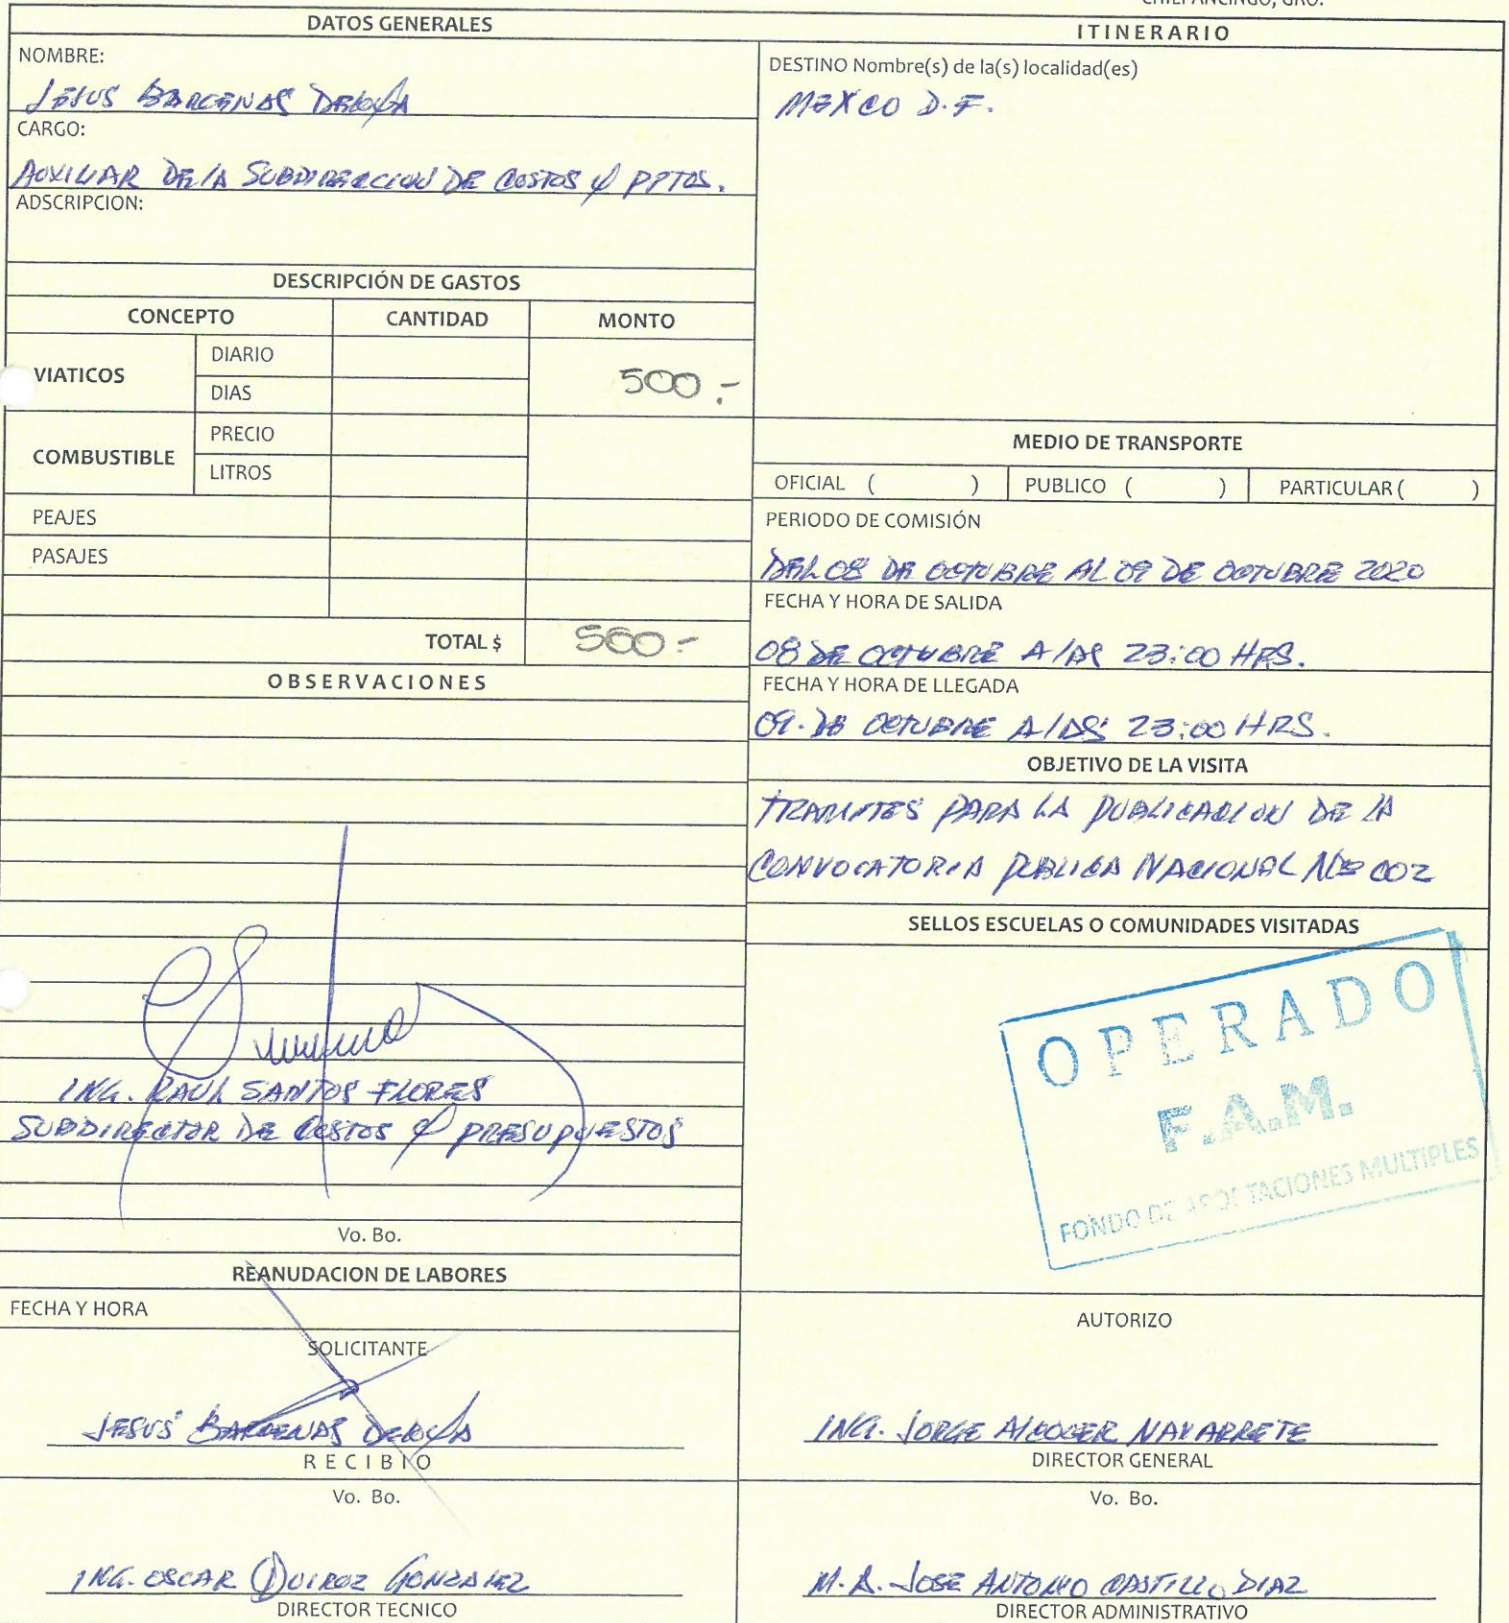 CHILPANCINGO, GRO.
DATOS GENERALES
NOMBRE:
JESUS BARCENAS DELOYA
CARGO:
AUXILIAR DE LA SUBDIRECCION DE COSTOS Y PPTOS.
ADSCRIPCION:
DESCRIPCIÓN DE GASTOS
CONCEPTO CANTIDAD MONTO
VIATICOS
DIARIO
DIAS
500.-
COMBUSTIBLE
PRECIO
LITROS
PEAJES
PASAJES
TOTAL $ 500.-
OBSERVACIONES
ING. RAUL SANTOS FLORES
SUBDIRECTOR DE COSTOS Y PRESUPUESTOS
Vo. Bo.
REANUDACION DE LABORES
FECHA Y HORA
SOLICITANTE
JESUS BARCENAS DELOYA
RECIBIO
Vo. Bo.
ING. OSCAR QUIROZ GONZALEZ
DIRECTOR TECNICO
ITINERARIO
DESTINO Nombre(s) de la(s) localidad(es)
MEXICO D.F.
MEDIO DE TRANSPORTE
OFICIAL ( ) PUBLICO ( ) PARTICULAR ( )
PERIODO DE COMISIÓN
DEL 08 DE OCTUBRE AL 09 DE OCTUBRE 2020
FECHA Y HORA DE SALIDA
08 DE OCTUBRE A LAS 23:00 HRS.
FECHA Y HORA DE LLEGADA
09. DE OCTUBRE A LAS 23:00 HRS.
OBJETIVO DE LA VISITA
TRAMITES PARA LA PUBLICACION DE LA
CONVOCATORIA PUBLICA NACIONAL No 002
SELLOS ESCUELAS O COMUNIDADES VISITADAS
OPERADO
F.A.M.
FONDO DE APORTACIONES MULTIPLES
AUTORIZO
ING. JORGE ALCOCER NAVARRETE
DIRECTOR GENERAL
Vo. Bo.
M.A. JOSE ANTONIO CASTILLO DIAZ
DIRECTOR ADMINISTRATIVO